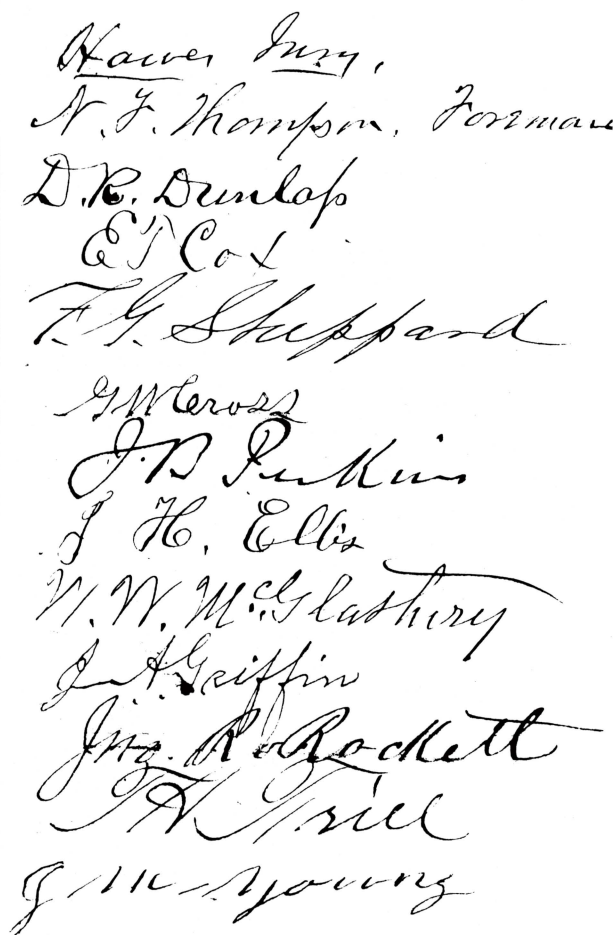 Hawes Jury,
N. F. Thompson, Forman
D. R. Dunlap
E T Cox
F. G. Sheppard
G W Cross
J. B Perkins
J H. Ellis
N. W. McGlathery
J A Griffin
Jno. R. Rockett
T H Trill
J M Young